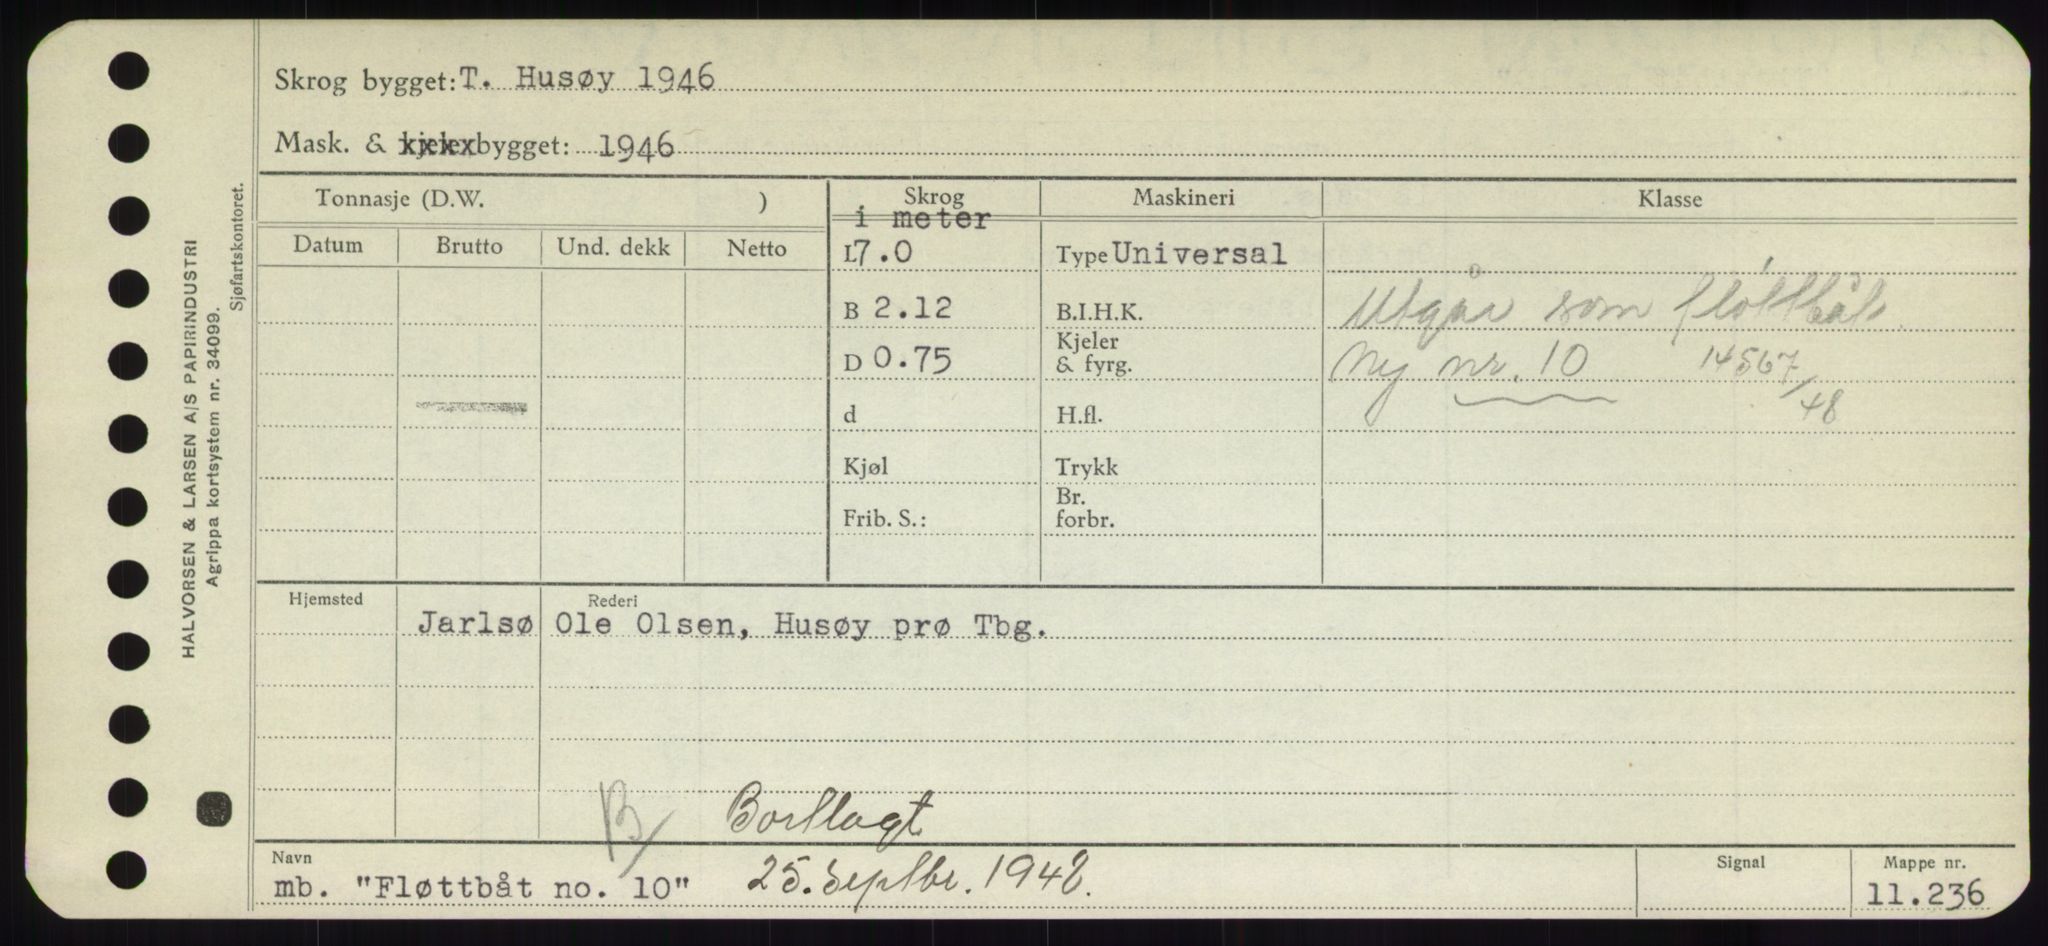 Skrog bygget: T. Husøy 1946
Mask. & bygget: 1946
Tonnasje (D.W. )
Skrog
i meter
Maskineri
Klasse
Datum
Brutto
Und. dekk
Netto
L 7.0
Type Universal
B 2.12
B.I.H.K.
Utgår som fløttbåt.
D 0.75
Kjeler
& fyrg.
Ny nr. 10 14567/48
d
H.fl.
Kjøl
Trykk
Frib. S.:
Br.
forbr.
Hjemsted
Rederi
Jarlsø Ole Olsen, Husøy prø Tbg.
B/ Bortlagt
Navn
Signal
Mappe nr.
mb. "Fløttbåt no. 10" 25. Septbr. 1948.
11.236
HALVORSEN & LARSEN A/S PAPIRINDUSTRI
Agrippa kortsystem nr. 34099.
Sjøfartskontoret.